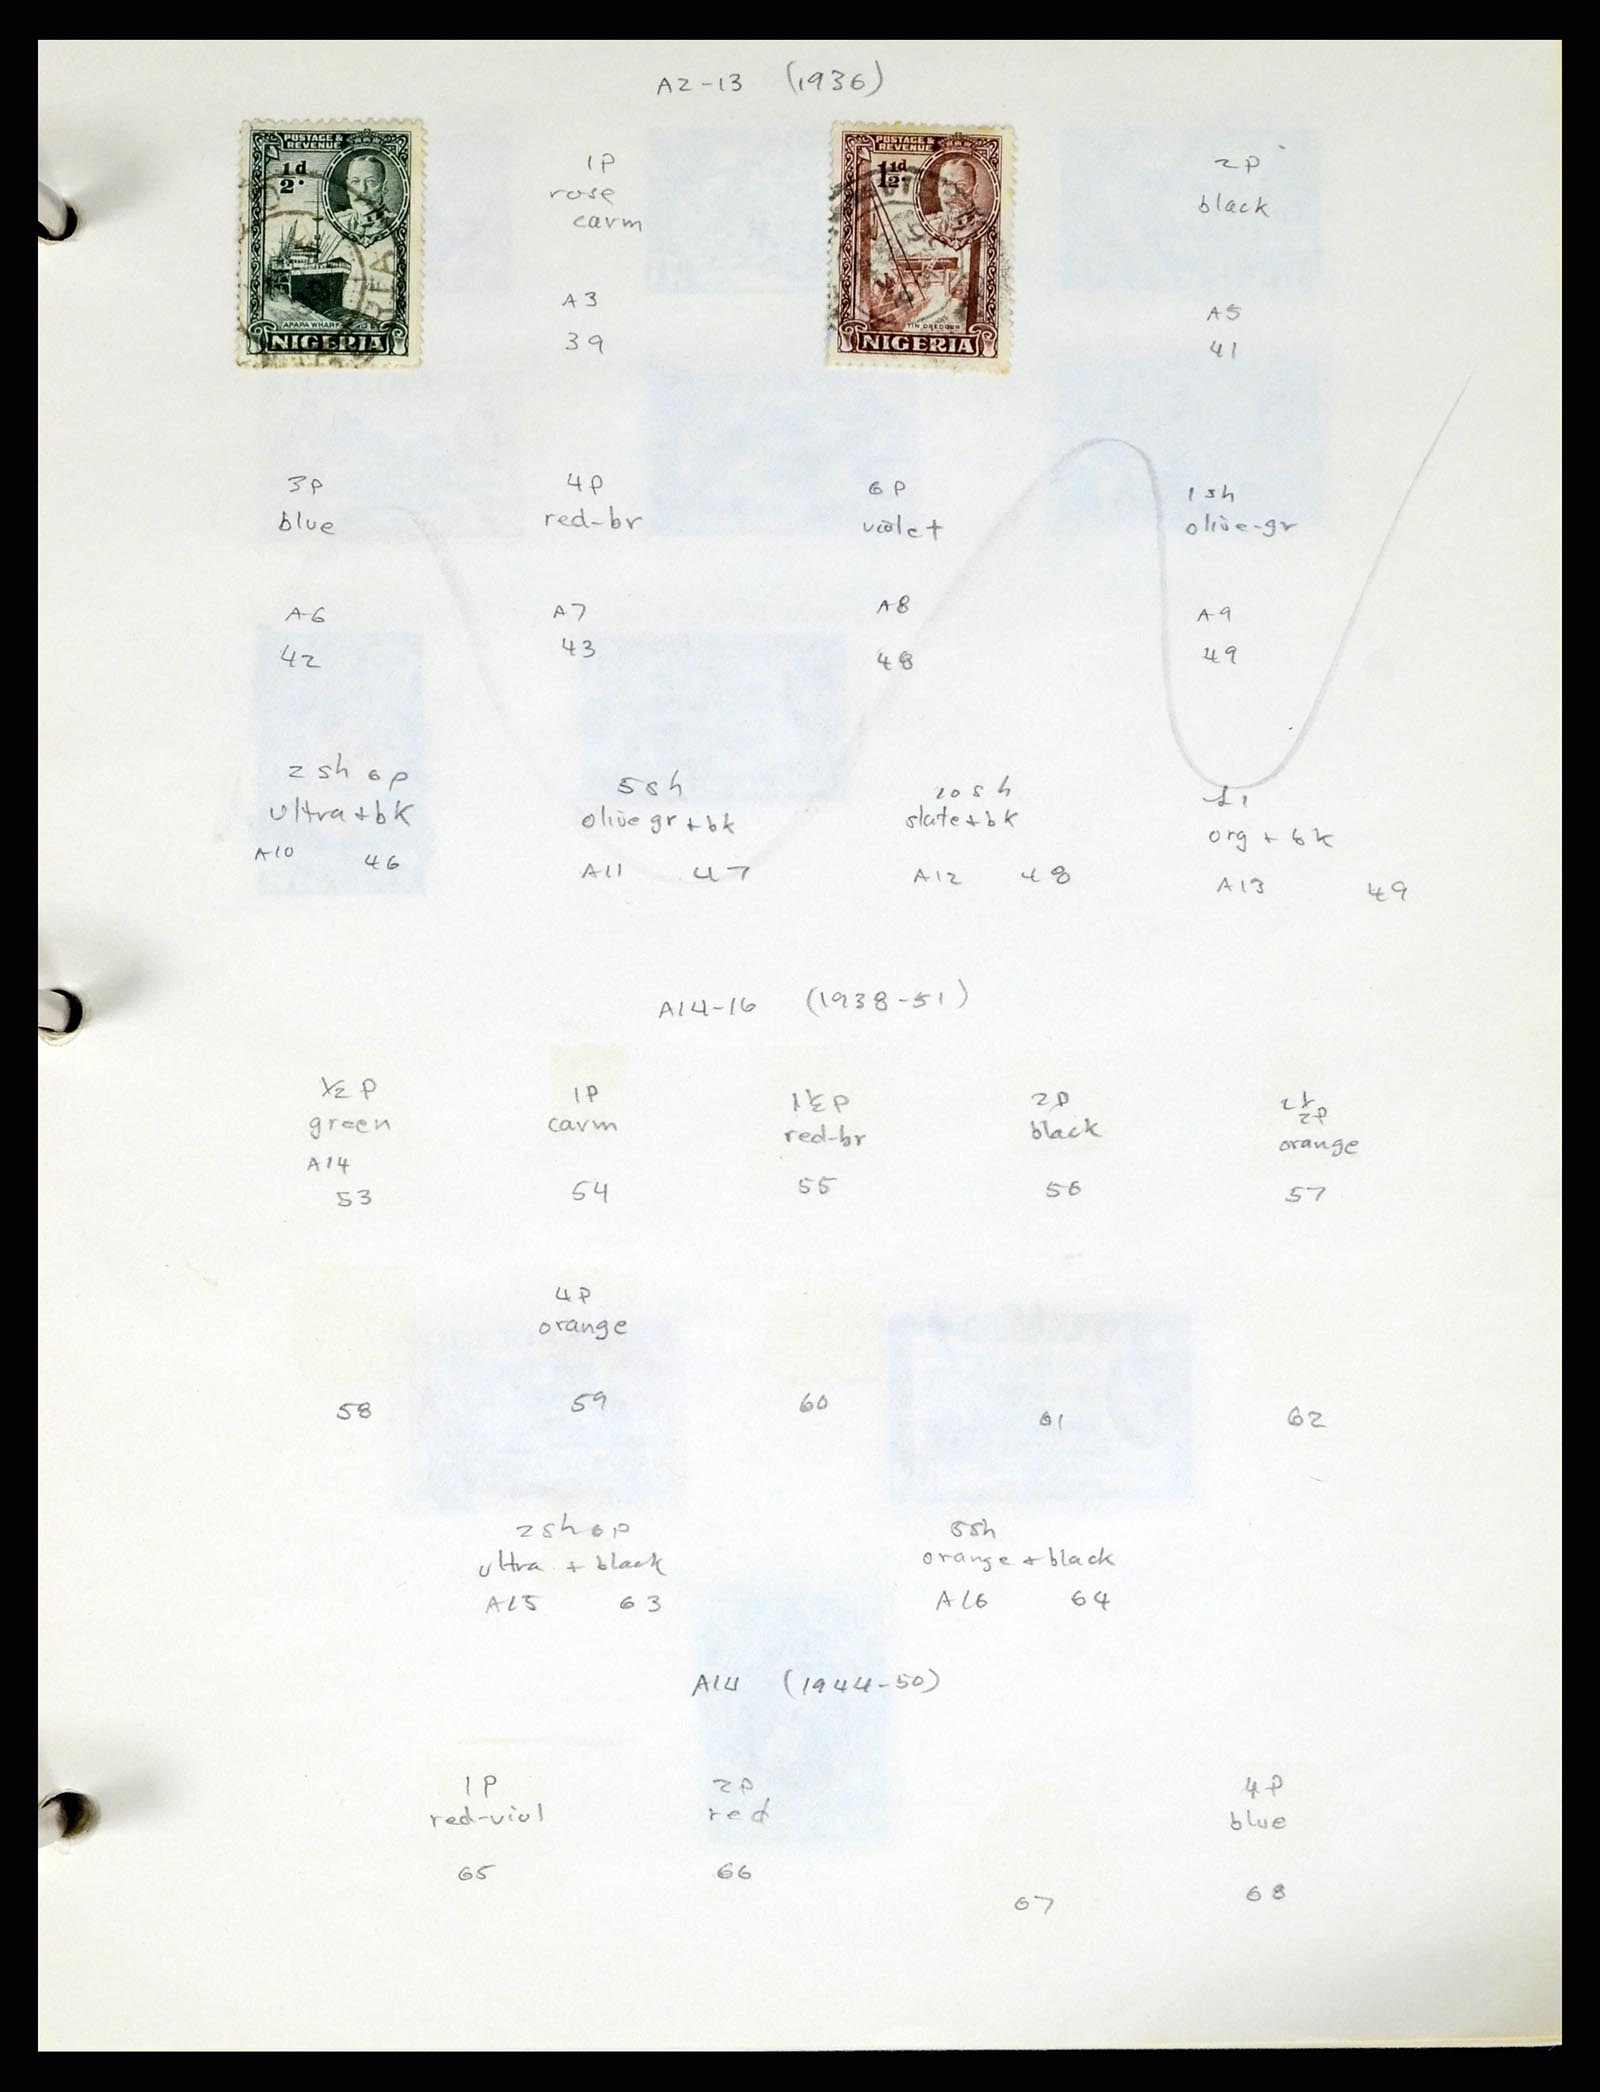 A2-13 (1936)
POSTAGE &
REVENUE
½d
APAPA WHARF
NIGERIA
1P
rose
carm
A3
39
POSTAGE &
REVENUE
1½d
TIN DREDGER
NIGERIA
2P
black
A5
41
3P
blue
A6
42
4P
red-br
A7
43
6P
violet
A8
48
1sh
olive-gr
A9
49
2sh 6p
ultra + bk
A10 46
5sh
olive gr + bk
A11 47
20sh
slate + bk
A12 48
£1
org + bk
A13 49
A14-16 (1938-51)
½P
green
A14
53
1P
carm
54
1½P
red-br
55
2P
black
56
2½P
orange
57
58
4P
orange
59
60
61
62
2sh 6p
ultra + black
A15 63
5sh
orange + black
A16 64
A14 (1944-50)
1P
red-viol
65
2P
red
66
67
4P
blue
68